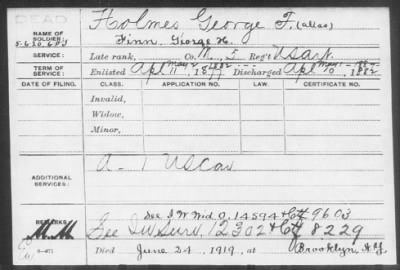 DEAD
NAME OF SOLDIER:
Holmes George F. (alias)
Finn, George H.
Late rank, Co. M, 5 Reg't US Art
TERM OF SERVICE:
Enlisted Apl 11, 1877 Discharged Apl 10, 1882
DATE OF FILING. CLASS. APPLICATION NO. LAW. CERTIFICATE NO.
Invalid,
Widow,
Minor,
ADDITIONAL SERVICES:
A-1 US Cav
REMARKS:
See I W Wid O, 14594 + Ctf 9603
See IW Surv. 12302 + Ctf 8229
Died June 24, 1919, at Brooklyn, N.Y.